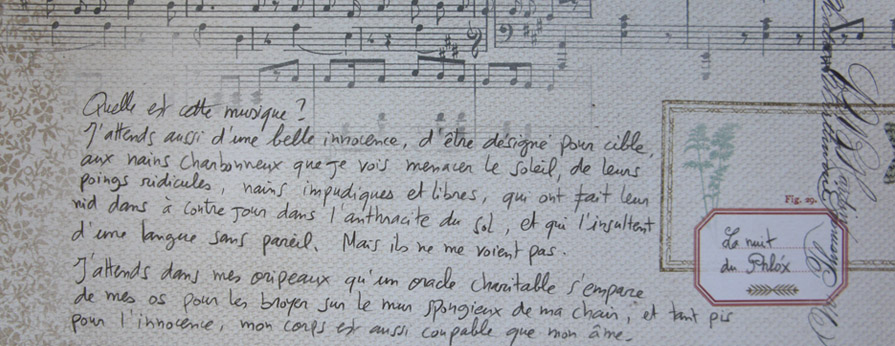 Quelle est cette musique ?
J'attends aussi d'une belle innocence, d'être désigné pour cible,
aux nains charbonneux que je vois menacer le soleil, de leurs
poings ridicules, nains impudiques et libres, qui ont fait leur
nid dans à contre jour dans l'anthracite du sol, et qui l'insultent
d'une langue sans pareil. Mais ils ne me voient pas.
J'attends dans mes oripeaux qu'un oracle charitable s'empare
de mes os pour les broyer sur le mur spongieux de ma chair, et tant pis
pour l'innocence, mon corps est aussi coupable que mon âme.
Fig. 29.
La nuit
du Phlóx